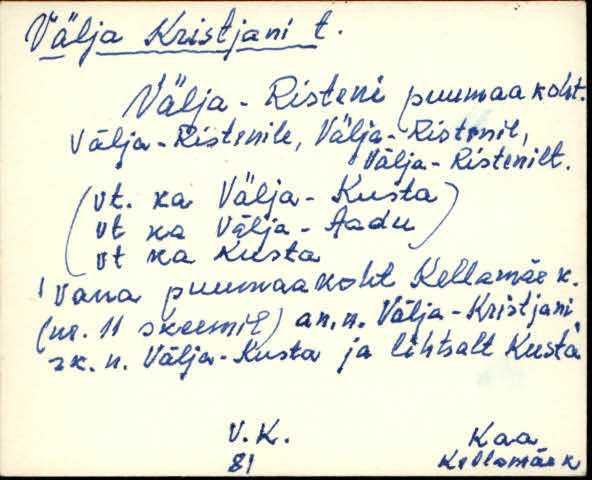 Välja Kristjani t.
Välja-Risteni puumaakoht.
Välja-Ristenile, Välja-Ristenil,
Välja-Ristenilt.
(vt. ka Välja-Kusta)
vt ka Välja-Aadu
vt ka Kusta
Vana puumaakoht Kellamäe k.
(nr. 11 skeemil) an.n. Välja-Kristjani
rk. n. Välja-Kusta ja lihtsalt Kusta
V.K. Kaa
81 Kellamäe k